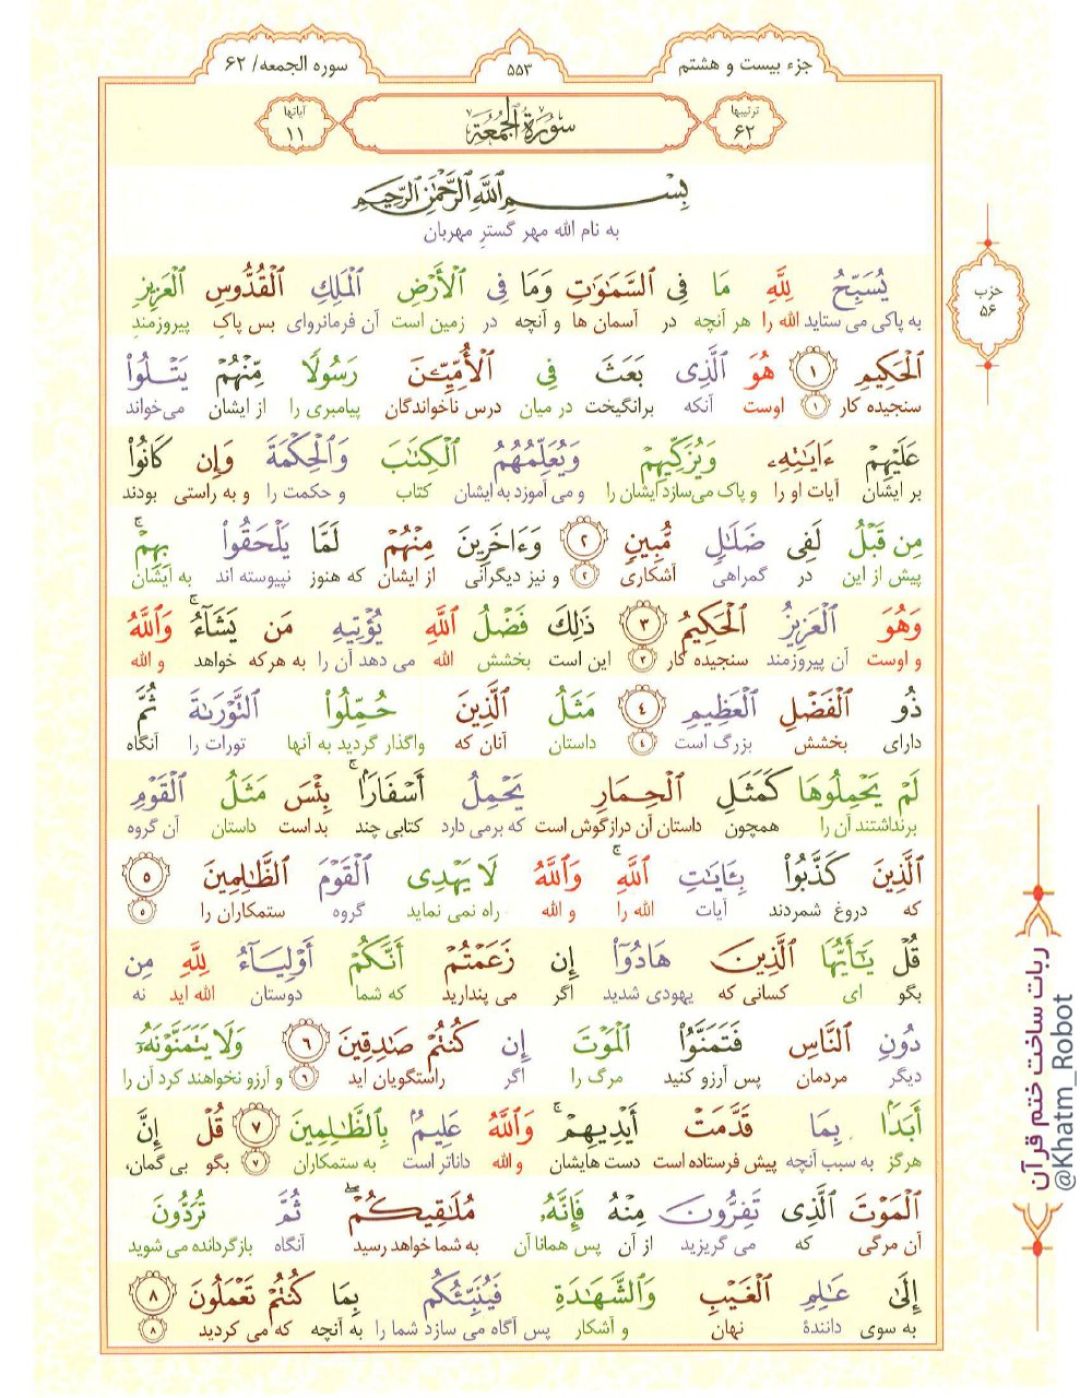 جزء بیست و هشتم
۵۵۳
سوره الجمعه/ ۶۲
ترتیبها
۶۲
سُورَةُ الجُمُعَة
آیاتها
۱۱
بِسْمِ ٱللَّهِ ٱلرَّحْمَٰنِ ٱلرَّحِيمِ
به نام الله مهر گسترِ مهربان
يُسَبِّحُ لِلَّهِ مَا فِى ٱلسَّمَٰوَٰتِ وَمَا فِى ٱلْأَرْضِ ٱلْمَلِكِ ٱلْقُدُّوسِ ٱلْعَزِيزِ
به پاکی می ستاید الله را هر آنچه در آسمان ها و آنچه در زمین است آن فرمانروای بس پاکِ پیروزمندِ
ٱلْحَكِيمِ ١ هُوَ ٱلَّذِى بَعَثَ فِى ٱلْأُمِّيِّـۧنَ رَسُولًا مِّنْهُمْ يَتْلُوا۟
سنجیده کار ۱ اوست آنکه برانگیخت در میان درس ناخواندگان پیامبری را از ایشان می‌خواند
عَلَيْهِمْ ءَايَٰتِهِۦ وَيُزَكِّيهِمْ وَيُعَلِّمُهُمُ ٱلْكِتَٰبَ وَٱلْحِكْمَةَ وَإِن كَانُوا۟
بر ایشان آیات او را و پاک می‌سازد ایشان را و می آموزد به ایشان کتاب و حکمت را و به راستی بودند
مِن قَبْلُ لَفِى ضَلَٰلٍ مُّبِينٍ ٢ وَءَاخَرِينَ مِنْهُمْ لَمَّا يَلْحَقُوا۟ بِهِمْ ۚ
پیش از این در گمراهی آشکاری ۲ و نیز دیگرانی از ایشان که هنوز نپیوسته اند به ایشان
وَهُوَ ٱلْعَزِيزُ ٱلْحَكِيمُ ٣ ذَٰلِكَ فَضْلُ ٱللَّهِ يُؤْتِيهِ مَن يَشَآءُ ۚ وَٱللَّهُ
و اوست آن پیروزمند سنجیده کار ۳ این است بخشش الله می دهد آن را به هرکه خواهد و الله
ذُو ٱلْفَضْلِ ٱلْعَظِيمِ ٤ مَثَلُ ٱلَّذِينَ حُمِّلُوا۟ ٱلتَّوْرَىٰةَ ثُمَّ
دارای بخشش بزرگ است ۴ داستان آنان که واگذار گردید به آنها تورات را آنگاه
لَمْ يَحْمِلُوهَا كَمَثَلِ ٱلْحِمَارِ يَحْمِلُ أَسْفَارًۢا ۚ بِئْسَ مَثَلُ ٱلْقَوْمِ
برنداشتند آن را همچون داستان آن درازگوش است که برمی دارد کتابی چند بد است داستان آن گروه
ٱلَّذِينَ كَذَّبُوا۟ بِـَٔايَٰتِ ٱللَّهِ ۚ وَٱللَّهُ لَا يَهْدِى ٱلْقَوْمَ ٱلظَّٰلِمِينَ ٥
که دروغ شمردند آیات الله را و الله راه نمی نماید گروه ستمکاران را ۵
قُلْ يَٰٓأَيُّهَا ٱلَّذِينَ هَادُوٓا۟ إِن زَعَمْتُمْ أَنَّكُمْ أَوْلِيَآءُ لِلَّهِ مِن
بگو ای کسانی که یهودی شدید اگر می پندارید که شما دوستان الله اید نه
دُونِ ٱلنَّاسِ فَتَمَنَّوُا۟ ٱلْمَوْتَ إِن كُنتُمْ صَٰدِقِينَ ٦ وَلَا يَتَمَنَّوْنَهُۥٓ
دیگر مردمان پس آرزو کنید مرگ را اگر راستگویان اید ۶ و آرزو نخواهند کرد آن را
أَبَدًۢا بِمَا قَدَّمَتْ أَيْدِيهِمْ ۚ وَٱللَّهُ عَلِيمٌۢ بِٱلظَّٰلِمِينَ ٧ قُلْ إِنَّ
هرگز به سبب آنچه پیش فرستاده است دست هایشان و الله داناتر است به ستمکاران ۷ بگو بی گمان،
ٱلْمَوْتَ ٱلَّذِى تَفِرُّونَ مِنْهُ فَإِنَّهُۥ مُلَٰقِيكُمْ ۖ ثُمَّ تُرَدُّونَ
آن مرگی که می گریزید از آن پس همانا آن به شما خواهد رسید آنگاه بازگردانده می شوید
إِلَىٰ عَٰلِمِ ٱلْغَيْبِ وَٱلشَّهَٰدَةِ فَيُنَبِّئُكُم بِمَا كُنتُمْ تَعْمَلُونَ ٨
به سوی دانندۀ نهان و آشکار پس آگاه می سازد شما را به آنچه که می کردید ۸
حزب
۵۶
ربات ساخت ختم قرآن
@Khatm_Robot